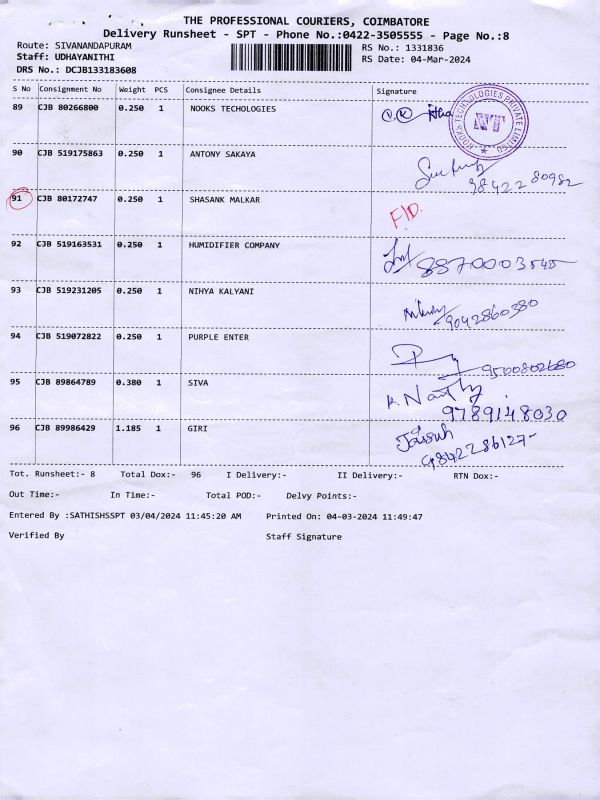 THE PROFESSIONAL COURIERS, COIMBATORE
Delivery Runsheet - SPT - Phone No.:0422-3505555 - Page No.:8
Route: SIVANANDAPURAM
RS No.: 1331836
Staff: UDHAYANITHI
RS Date: 04-Mar-2024
DRS No.: DCJB133183608
S No Consignment No Weight PCS Consignee Details Signature
89 CJB 80266800 0.250 1 NOOKS TECHOLOGIES
90 CJB 519175863 0.250 1 ANTONY SAKAYA
98422 80982
91 CJB 80172747 0.250 1 SHASANK MALKAR
F/D.
92 CJB 519163531 0.250 1 HUMIDIFIER COMPANY
8870003545
93 CJB 519231205 0.250 1 NIHYA KALYANI
9042860380
94 CJB 519072822 0.250 1 PURPLE ENTER
9500802680
95 CJB 89864789 0.380 1 SIVA
9789148030
96 CJB 89986429 1.185 1 GIRI
9842286127
Tot. Runsheet:- 8 Total Dox:- 96 I Delivery:- II Delivery:- RTN Dox:-
Out Time:- In Time:- Total POD:- Delvy Points:-
Entered By :SATHISHSSPT 03/04/2024 11:45:20 AM Printed On: 04-03-2024 11:49:47
Verified By Staff Signature